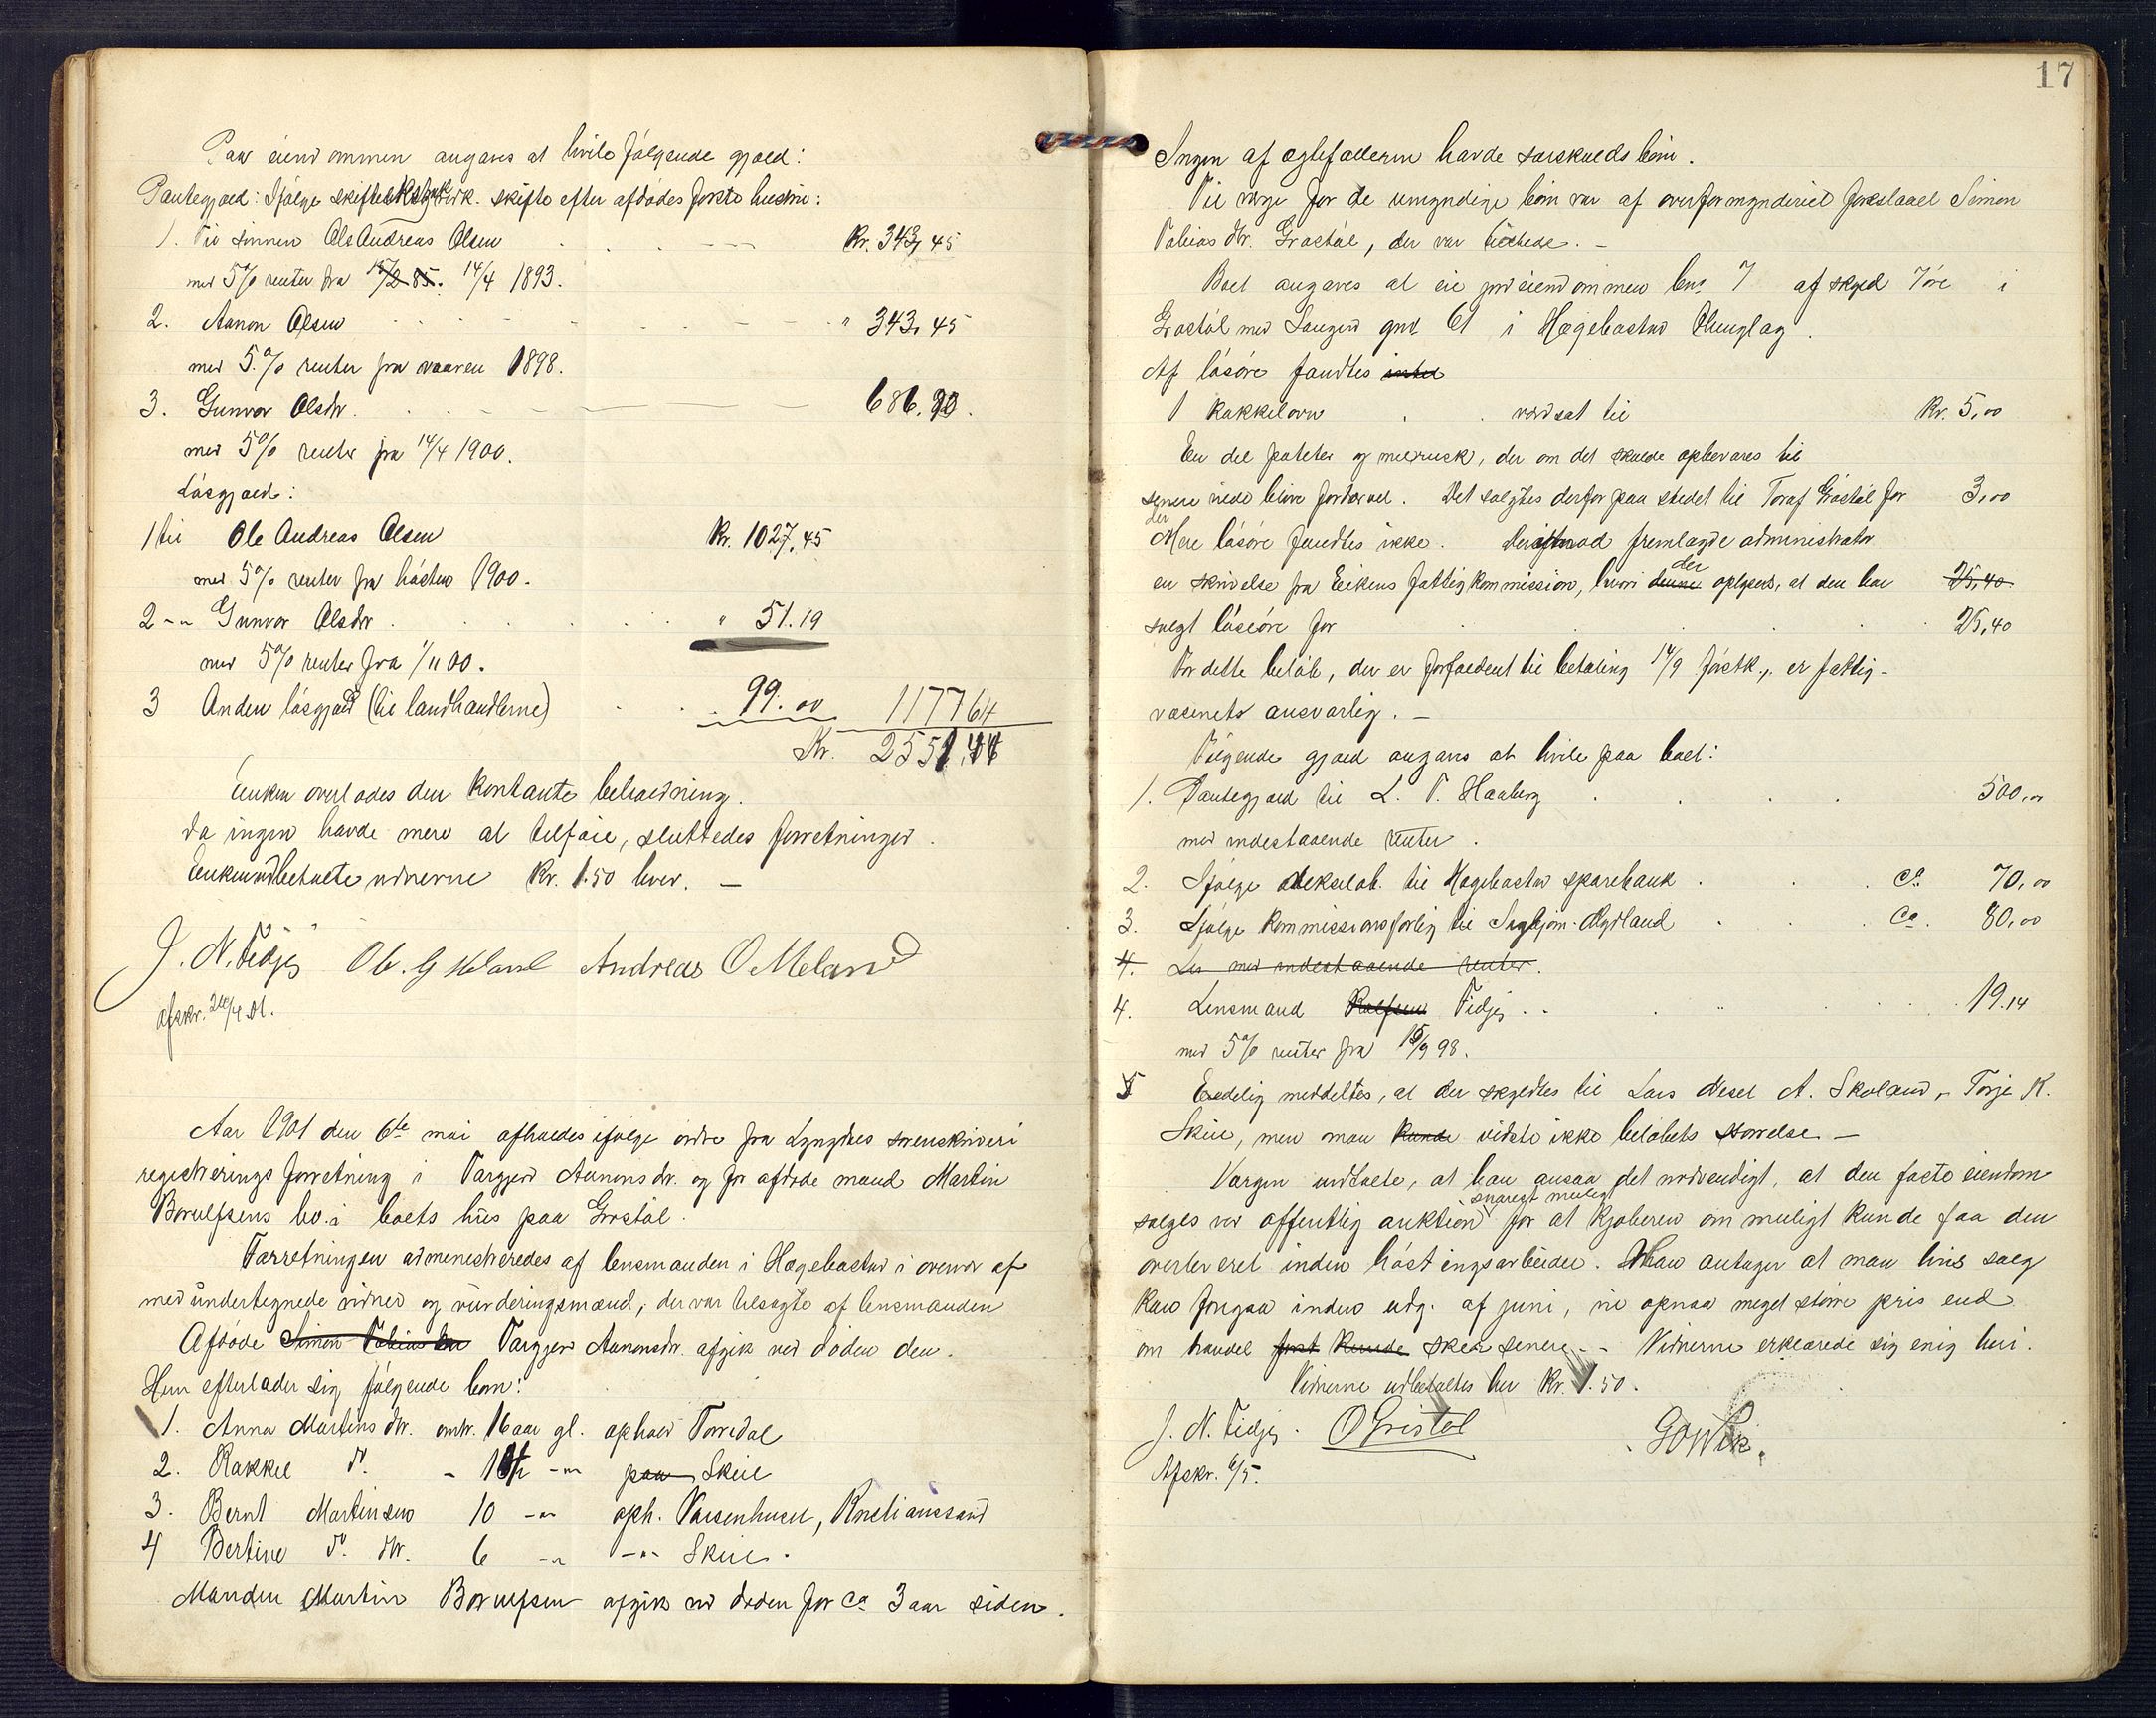 Paa eiendommen angaves at hvile følgende gjæld:
Pantegjæld: Ifølge skifte efter afdødes første hustru:
1. Til sønnen Ole Andreas Olsen Kr. 343,45
med 5% renter fra 15/2 85. 14/4 1893.
2. Aanon Olsen " 343,45
med 5% renter fra vaaren 1898.
3. Gunvor Olsdtr. 686.90.
med 5% renter fra 14/4 1900.
Løsgjæld:
1 til Ole Andreas Olsen Kr. 1027,45
med 5% renter fra høsten 1900.
2 -"- Gunvor Olsdtr. " 51.19
med 5% renter fra 1/11 00.
3 Anden løsgjæld (til landhandlerne) 99.00 117764
Kr. 2551,44
Enken overlodes den kontante beholdning.
Da ingen havde mere at tilføie, sluttedes forretningen.
Enken udbetalte vidnerne Kr. 1.50 hver. —
J. N. Tedjes Ole G Meland Andreas O Meland
Afskr. 24/4 01.
Aar 1901 den 6te mai afholdes ifølge ordre fra Lyngdals sorenskriveri
registreringsforretning i Targjerd Aanonsdtr. og før afdøde mand Martin
Borulfsens bo i boets hus paa Grøstøl.
Forretningen administreredes af lensmanden i Hægebostad i overvær af
medundertegnede vidner og vurderingsmænd, der var tilsagte af lensmanden
Afdøde Simon Tobias Targjerd Aanonsdtr. afgik ved døden den.
Hun efterlader sig følgende børn:
1. Anna Martinsdtr. omtr. 16 aar gl. ophold Torridal
2. Rakkel do. - -"- paa Skeie
3. Bernt Martinsen 10 -"- oph. Vaisenhuset, Kristianssand
4 Bertine do. dtr. 6 -"- -"- Skeie.
Manden Martin Borulfsen afgik ved døden for ca 3 aar siden.
17
Ingen af ægtefællerne havde særskuldsbørn.
Til værge for de umyndige børn var af overformynderiet foreslaaet Simon
Tobias Grøstøl, der var tilstede. —
Boet angaves at eie jordeiendommen bno 7 af skyld 7 øre i
Grøstøl med gno 61 i Hægebostad thinglag.
Af løsøre fandtes intet
1 kakkelovn værdsat til Kr. 5,00
En del poteter og, der om det skulde opbevares til
senere vilde blive fordærvet. Det solgtes derfor paa stedet til Toraf Grøstøl for 3,00
Mere løsøre fandtes ikke. fremlagde administrator
en skrivelse fra Eikens fattigkommission, hvori denne der oplyses, at den har 25,40
solgt løsøre for 25,40
For dette beløb, der er forfaldent til betaling 14/9 førstk., er fattig-
væsenet ansvarlig. —
Følgende gjæld angaves at hvile paa boet:
1. Pantegjæld til L. T. Haaberg 500,00
med indestaaende renter.
2. Ifølge vekselobl. til Hægebostad sparebank ca. 70,00
3. Ifølge kommissionsforlig til Sigbjørn Rydland ca. 80,00
4. med indestaaende renter.
4. Lensmand Rolfsen Tedjes 19.14
med 5% renter fra 15/9 98.
5 Endelig meddeltes, at der skyldtes til Lars A. Skoland, Torje K.
Skeie, men man kunde vidste ikke beløbets størrelse. —
Værgen udtalte, at han ansaa det nødvendigt, at den faste eiendom
sælges ved offentlig auktion snarest muligt for at kjøberen om muligt kunde faa den
overleveret inden høstingsarbeidet. Man antager at man hvis salg
kan foregaa inden udg. af juni, vil opnaa meget større pris end
om handel først kunde sker senere. — Vidnerne erklærede sig enig heri.
Vidnerne udbetaltes hver Kr. 1.50.
J. N. Tedjes. O Grøstøl
Afskr. 6/5.